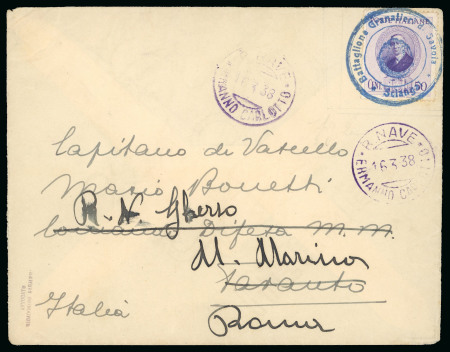 Battaglione Granatieri di Savoia
Sciangai
R. NAVE
16.3.38
ERMANNO CARLOTTO
R. NAVE
16.3.38
ERMANNO CARLOTTO
Capitano di Vascello
Mario Bonetti
R. N.
Comando Difesa M. M.
M. Marina
Taranto
Italia
Roma